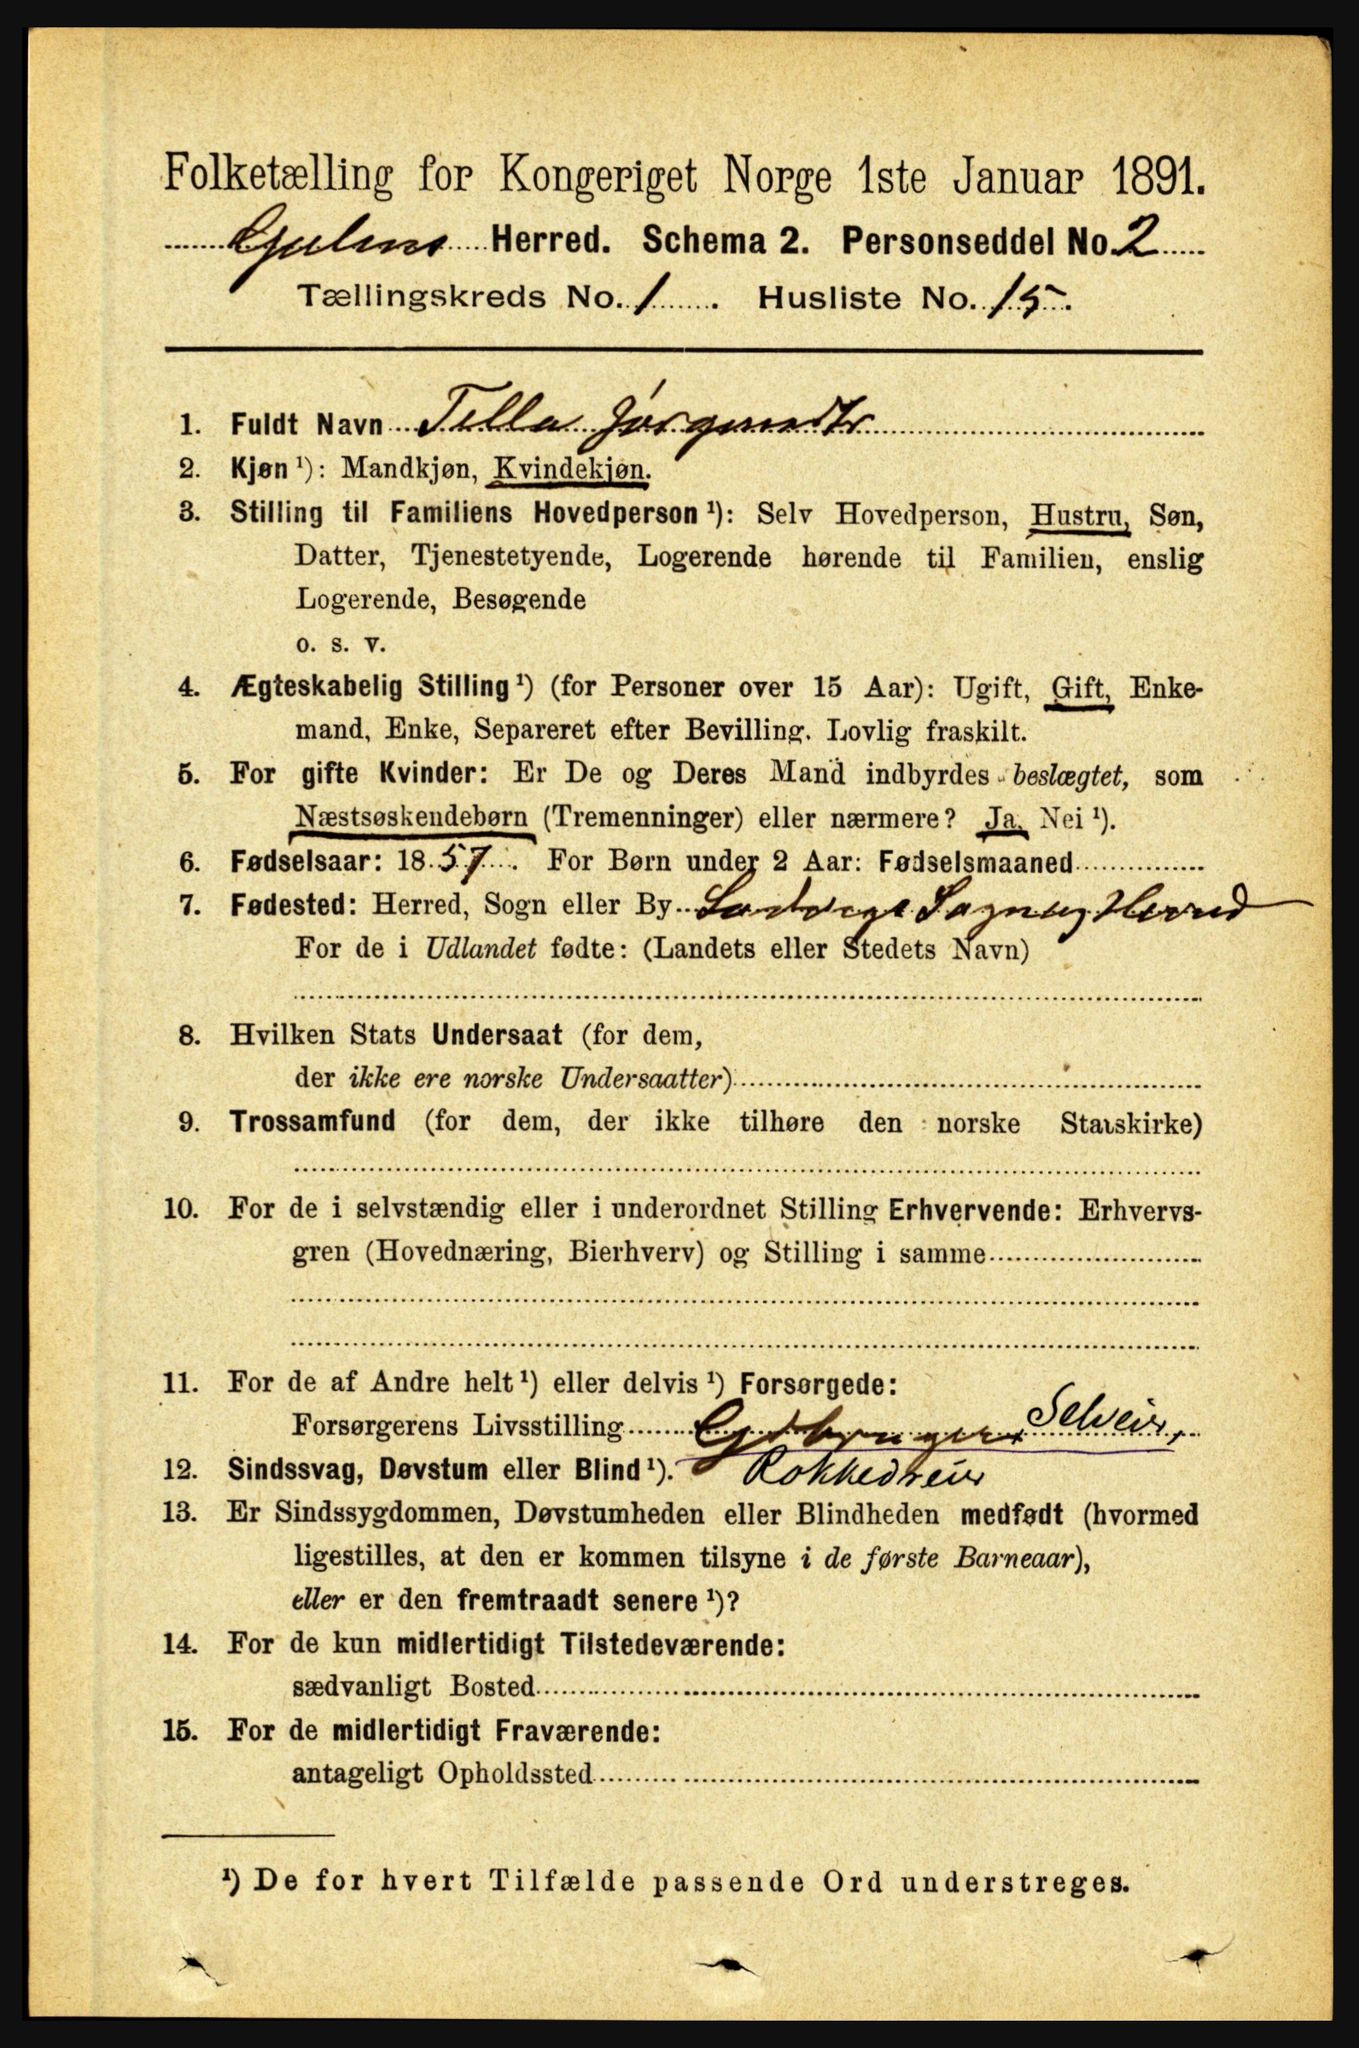 Folketælling for Kongeriget Norge 1ste Januar 1891.
Gulens Herred. Schema 2. Personseddel No. 2
Tællingskreds No. 1. Husliste No. 15.
1. Fuldt Navn Tella Jørgensdtr
2. Kjøn ¹): Mandkjøn, Kvindekjøn.
3. Stilling til Familiens Hovedperson ¹): Selv Hovedperson, Hustru, Søn,
Datter, Tjenestetyende, Logerende hørende til Familien, enslig
Logerende, Besøgende
o. s. v.
4. Ægteskabelig Stilling ¹) (for Personer over 15 Aar): Ugift, Gift, Enke-
mand, Enke, Separeret efter Bevilling. Lovlig fraskilt.
5. For gifte Kvinder: Er De og Deres Mand indbyrdes beslægtet, som
Næstsøskendebørn (Tremenninger) eller nærmere? Ja. Nei ¹).
6. Fødselsaar: 1857. For Børn under 2 Aar: Fødselsmaaned
7. Fødested: Herred, Sogn eller By Sogn og Herred
For de i Udlandet fødte: (Landets eller Stedets Navn)
8. Hvilken Stats Undersaat (for dem,
der ikke ere norske Undersaatter)
9. Trossamfund (for dem, der ikke tilhøre den norske Statskirke)
10. For de i selvstændig eller i underordnet Stilling Erhvervende: Erhvervs-
gren (Hovednæring, Bierhverv) og Stilling i samme
11. For de af Andre helt ¹) eller delvis ¹) Forsørgede:
Forsørgerens Livsstilling Gdbruger, Selveier,
12. Sindssvag, Døvstum eller Blind ¹). Rokkedreier
13. Er Sindssygdommen, Døvstumheden eller Blindheden medfødt (hvormed
ligestilles, at den er kommen tilsyne i de første Barneaar),
eller er den fremtraadt senere ¹)?
14. For de kun midlertidigt Tilstedeværende:
sædvanligt Bosted
15. For de midlertidigt Fraværende:
antageligt Opholdssted
¹) De for hvert Tilfælde passende Ord understreges.